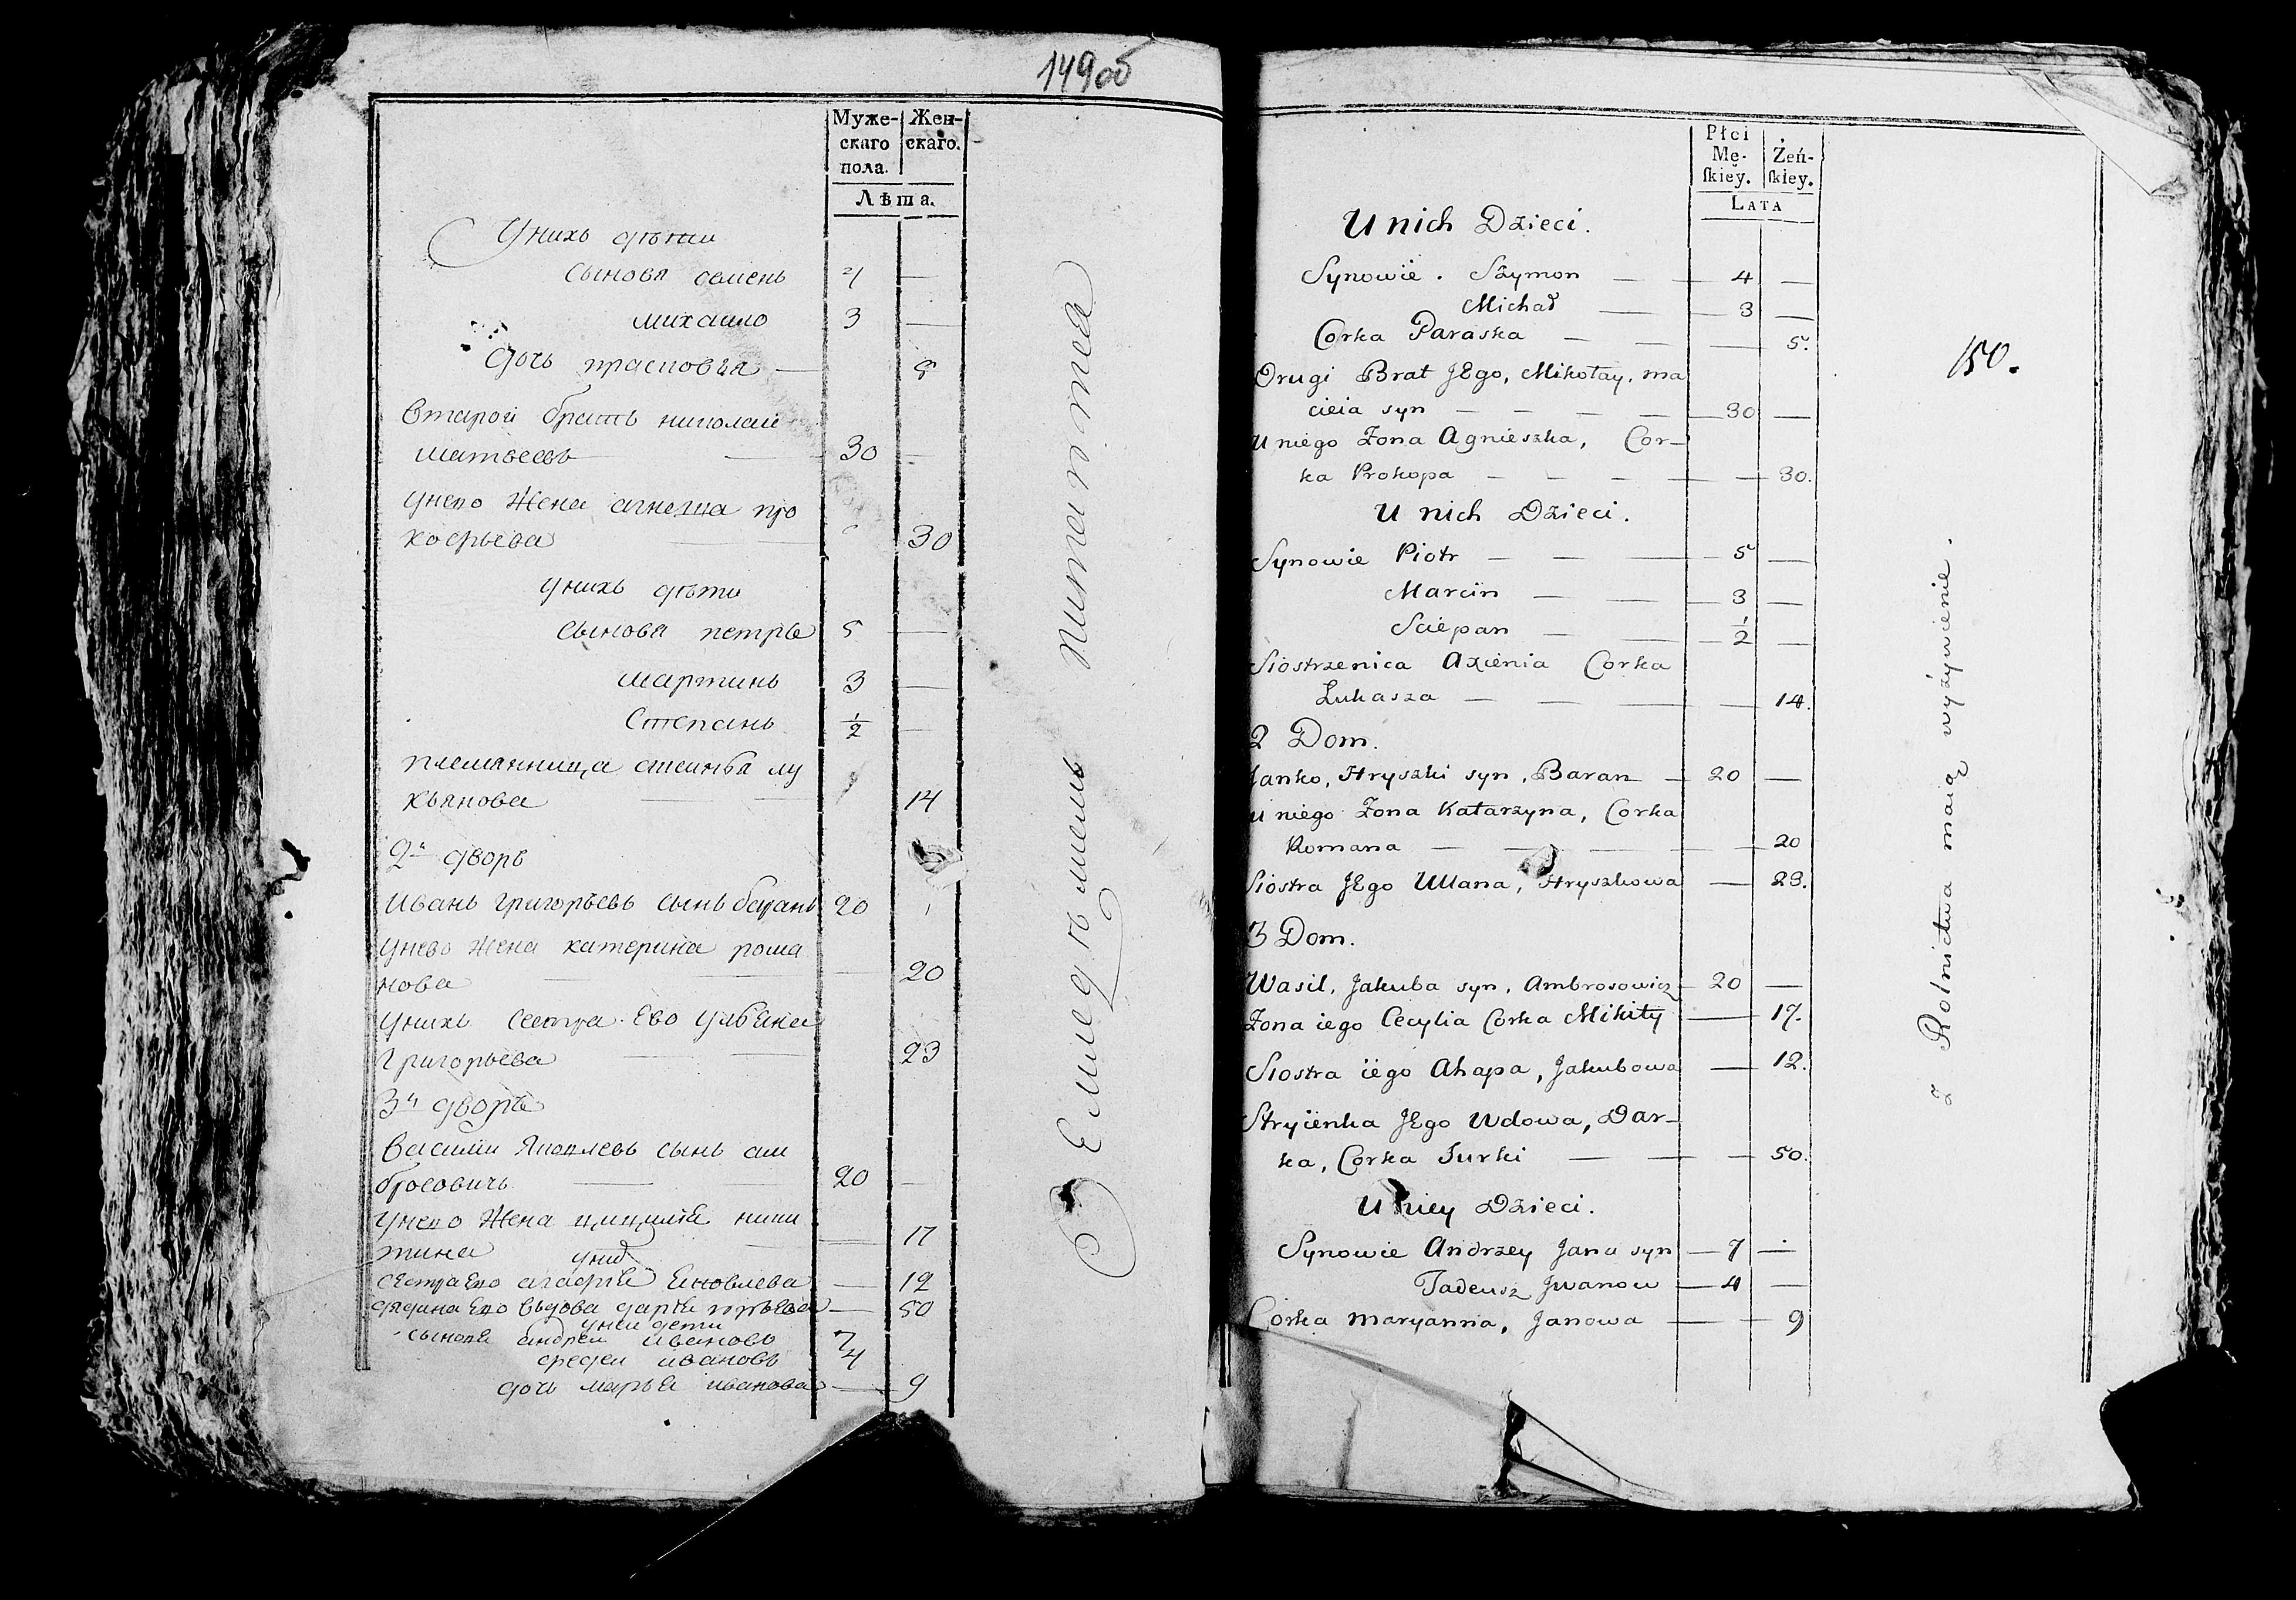 149об
Муже- Жен-
скаго скаго.
пола.
Лѣта.
Унихъ дѣти
сыновя семенъ 4 —
михаило 3 —
дочь прасковья — 5
Второй братъ николай
матвеевъ — 30 —
унево жена агнешка про
кофьева — 30
унихъ дѣти
сыновя петръ 5 —
мартинъ 3 —
Степанъ ½ —
племянница аксинья лу
кьянова — 14
2й дворъ
Иванъ григорьевъ сынъ баранъ 20
унево жена катерина рома
нова — 20
унихъ сестра ево ульяна
григорьева — 23
3й дворъ
Василий Яковлевъ сынъ ам
бросовичъ — 20 —
унево жена цицилия ники
тина — 17
уних
сестра ево агафья яковлева — 12
дядина ево вдова дарья юрьева — 50
унеи дети
сыновя андреи ивановъ 7
фадеи ивановъ 4
дочь марья иванова — 9
питаитеа
Płci
Mę- Żeń-
skiey. skiey.
LATA
U nich Dzieci.
Synowie. Szymon — 4 —
Michał — 3 —
Corka Paraska — — 5.
Drugi Brat JEgo, Mikołay, ma
cieia syn — 30 —
U niego Żona Agnieszka, Cor-
ka Prokopa — — 30.
U nich Dzieci.
Synowie Piotr — 5 —
Marcin — 3 —
Sciepan — ½ —
Siostrzenica Axienia Corka
Łukasza — — 14.
2 Dom.
Janko, Hryszki syn, Baran — 20 —
U niego Żona Katarzyna, Corka
Romana — — 20
Siostra JEgo Ullana, Hryszkowa — 23.
3 Dom.
Wasil, Jakuba syn, Ambrosowicz — 20 —
Żona iego Cecylia Corka Mikity — 17.
Siostra iego Ahapa, Jakubowa — 12.
Stryienka JEgo Wdowa, Dar-
ka, Corka Jurki — — 50.
U niey Dzieci.
Synowie Andrzey Jana syn — 7 —
Tadeusz Jwanow — 4 —
Corka Maryanna, Janowa — — 9
150.
z Rolnictwa maią wyżywienie.